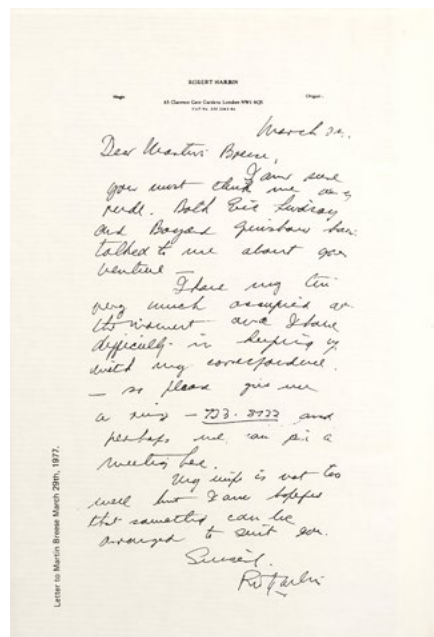 ROBERT HARBIN
Magic
Origami
65 Clarence Gate Gardens London NW1 6QS
March 29.
Dear Martin Breese,
I am sure
you must think me very
rude. Both Eric Lindsay
and Bayard Grimshaw have
talked to me about your
venture —
I have my time
very much occupied at
the moment and I have
difficulty in keeping up
with my correspondence.
— so please give me
a ring — 723. and
perhaps we can fix a
meeting here.
My wife is not too
well but I am hopeful
that something can be
arranged to suit you.
Sincerely.
Robt Harbin
Letter to Martin Breese March 29th, 1977.